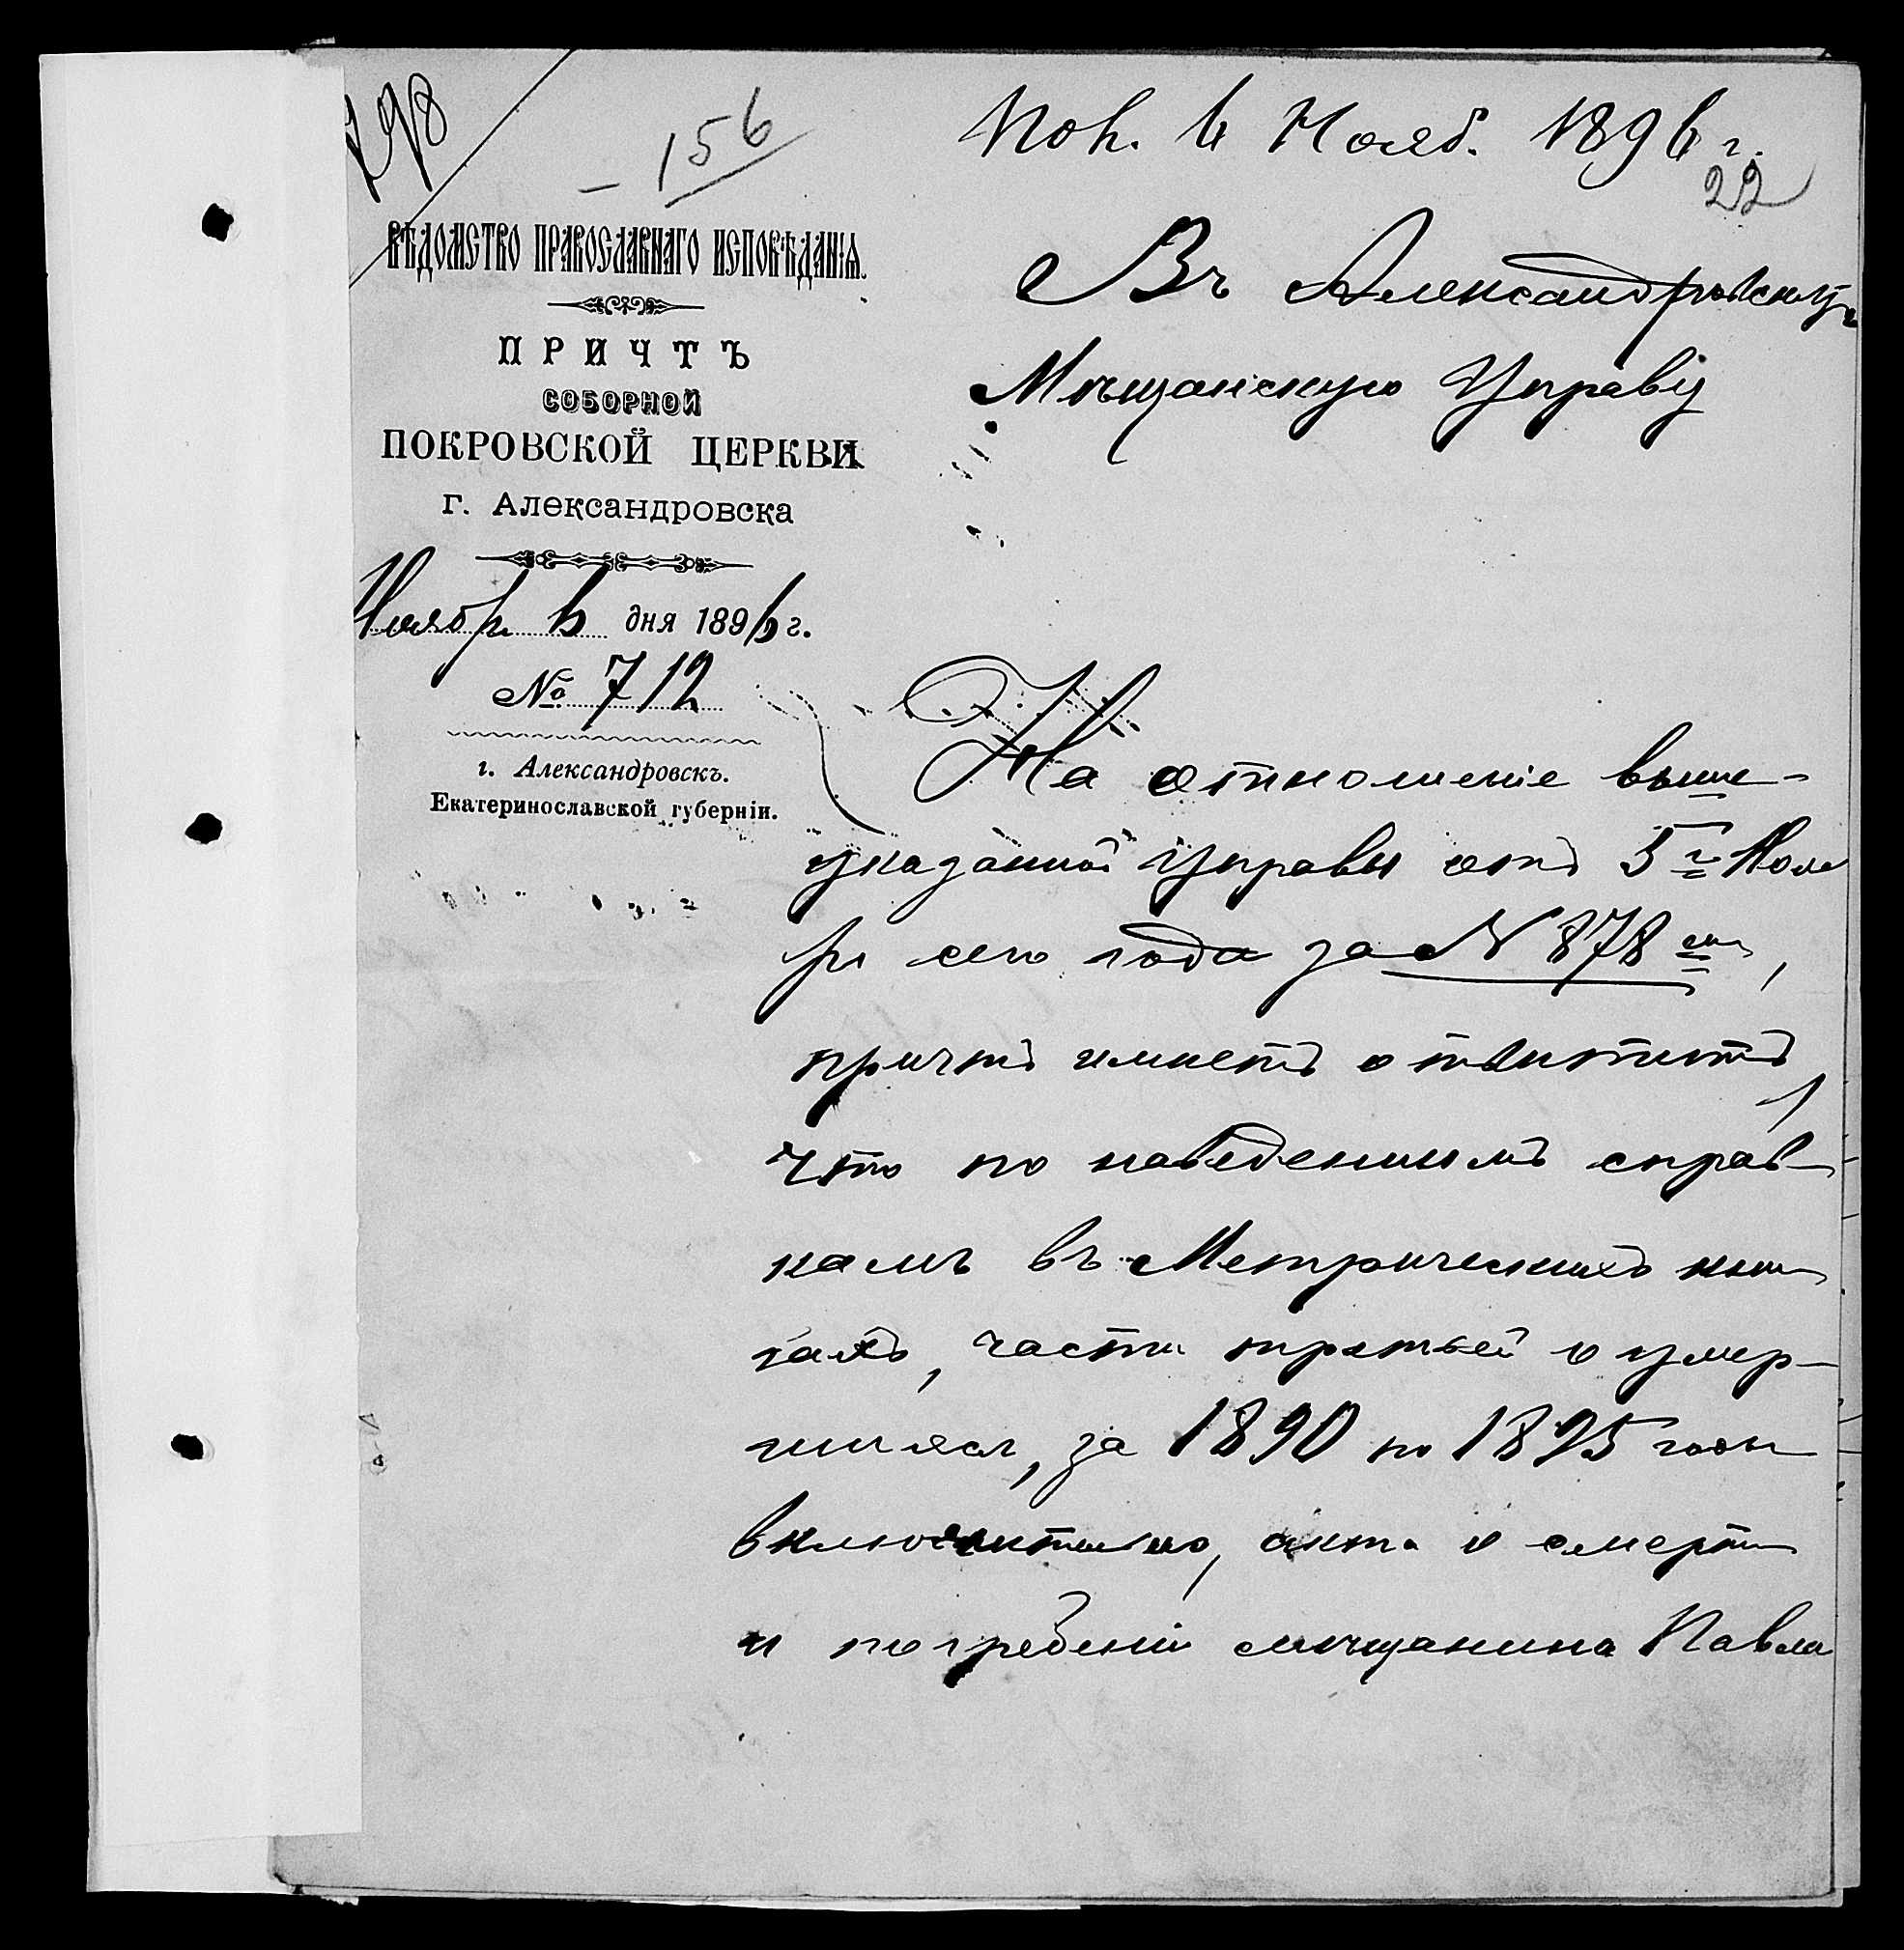 798
156
Пол. 6 Нояб. 1896 г.
22
ВѢДОМСТВО ПРАВОСЛАВНАГО ИСПОВѢДАНІЯ.
ПРИЧТЪ
СОБОРНОЙ
ПОКРОВСКОЙ ЦЕРКВИ
г. Александровска
Ноябр. 6 дня 1896 г.
№ 712
г. Александровскъ.
Екатеринославской губерніи.
Въ Александровскую
Мѣщанскую Управу
На отношеніе выше-
указанной Управы отъ 5го Нояб
ря сего года за N 878 ом,
причтъ имѣетъ отвѣтить,
что по наведеннымъ справ-
камъ въ Метрическихъ кни
гахъ, части третьей о умер-
шихъ, за 1890 по 1895 годы
включительно, акта о смерти
и погребеніи мѣщанина Павла